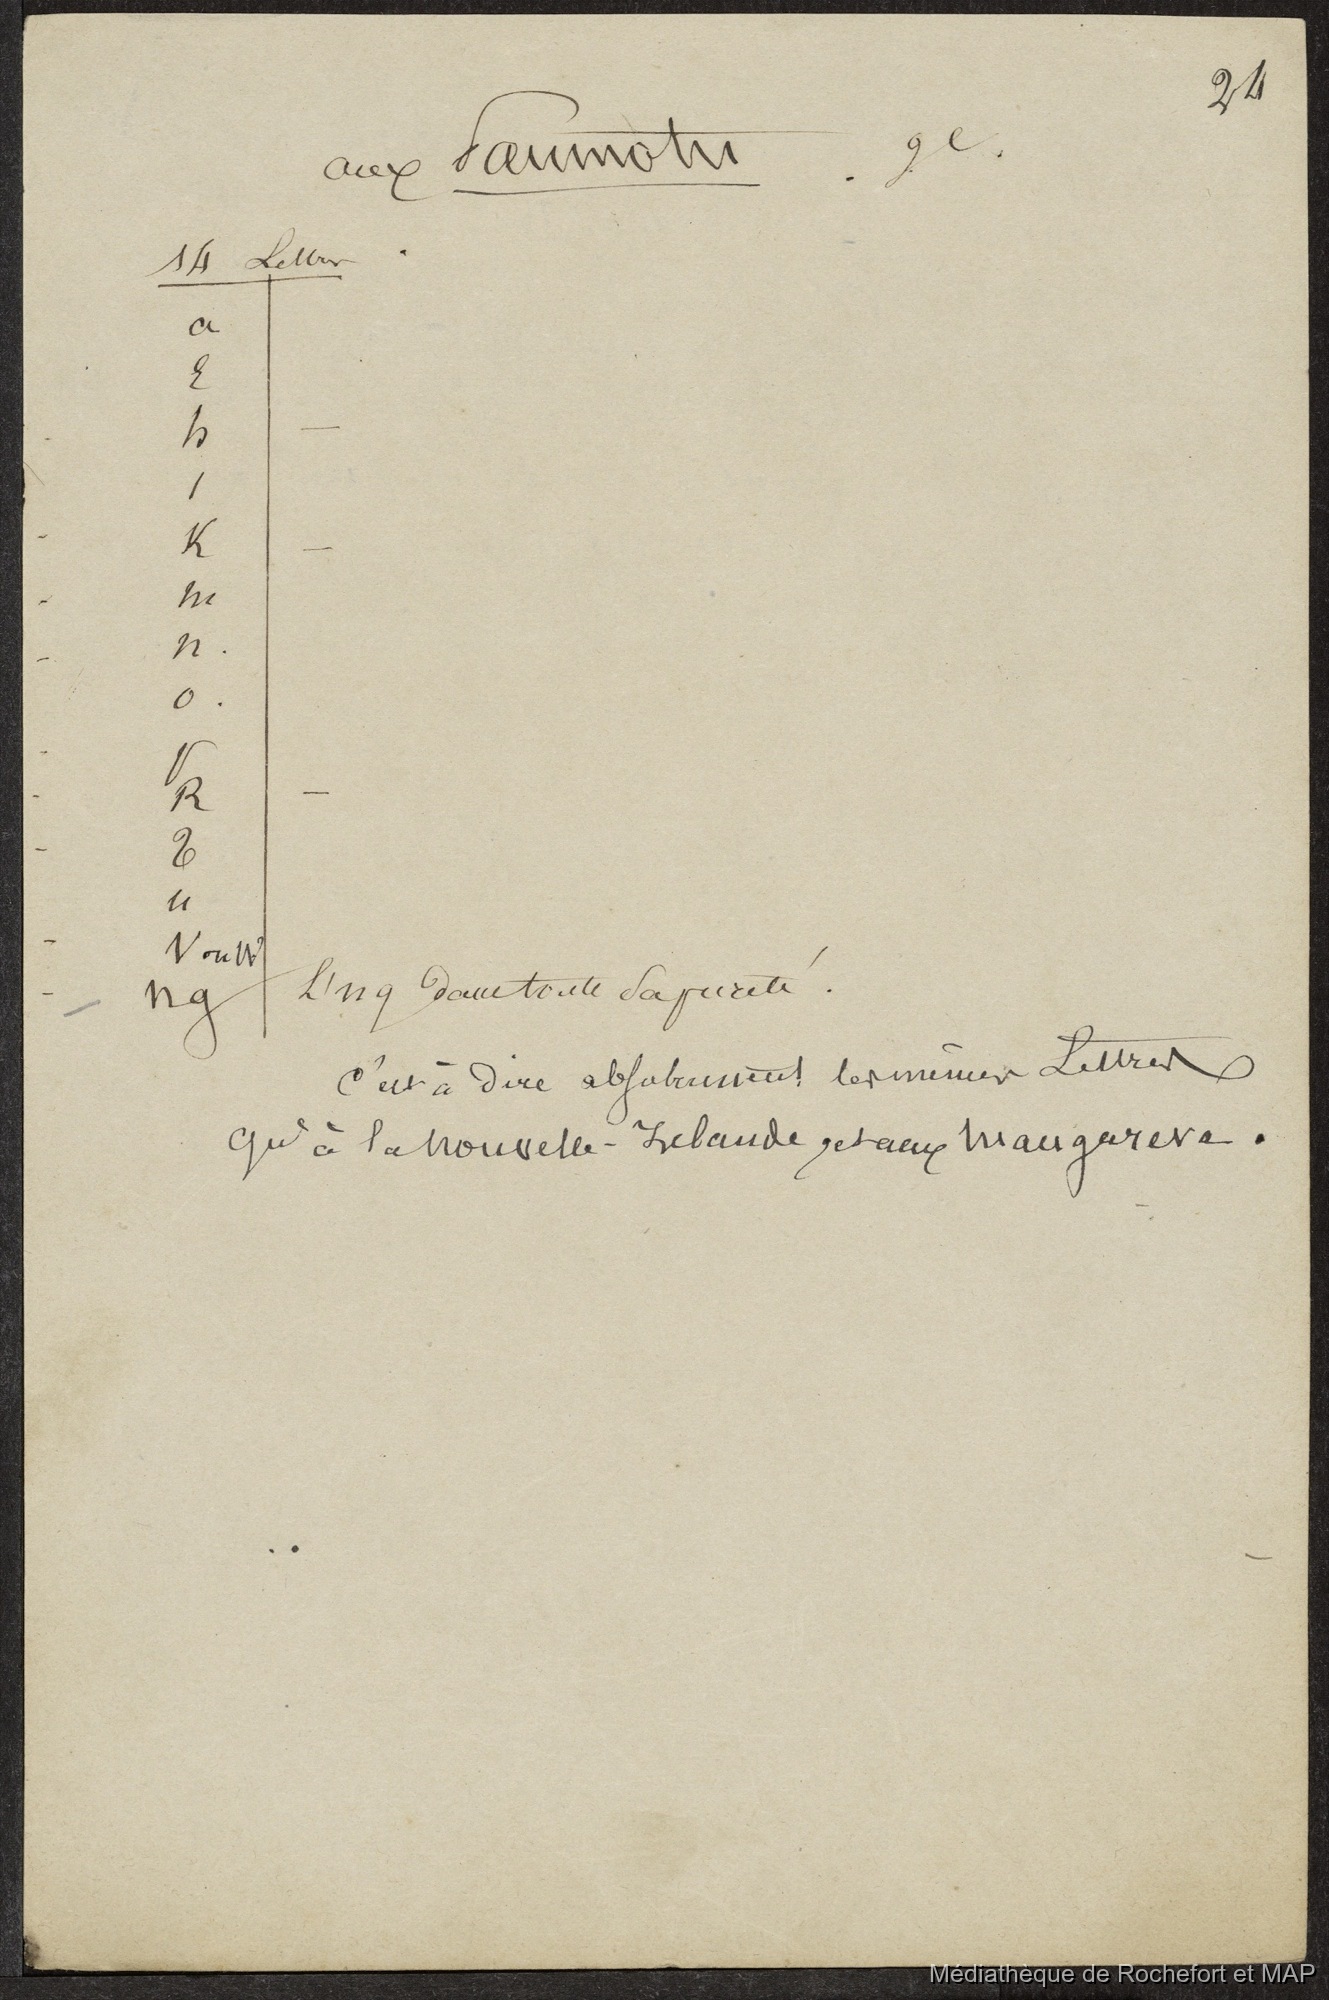 24
aux Paumotu . ge.
14 Lettres
a
E
h
i
K
m
n.
o.
P
R
T
u
V ou W
ng L'ng dans toute sa pureté.
C'est à dire absolument les mêmes Lettres
qu'à la Nouvelle-Zélande, et aux Mangareva.
Médiathèque de Rochefort et MAP